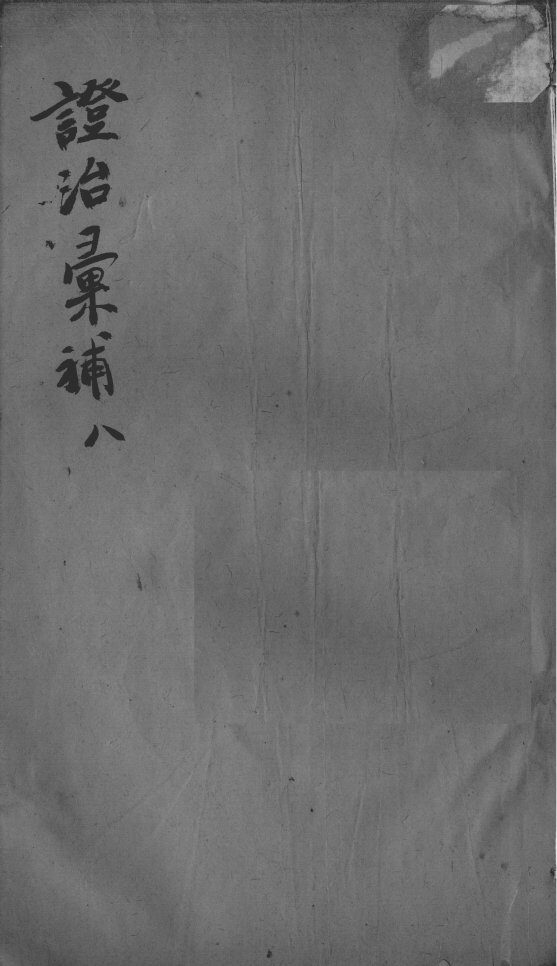 證治彙補 八